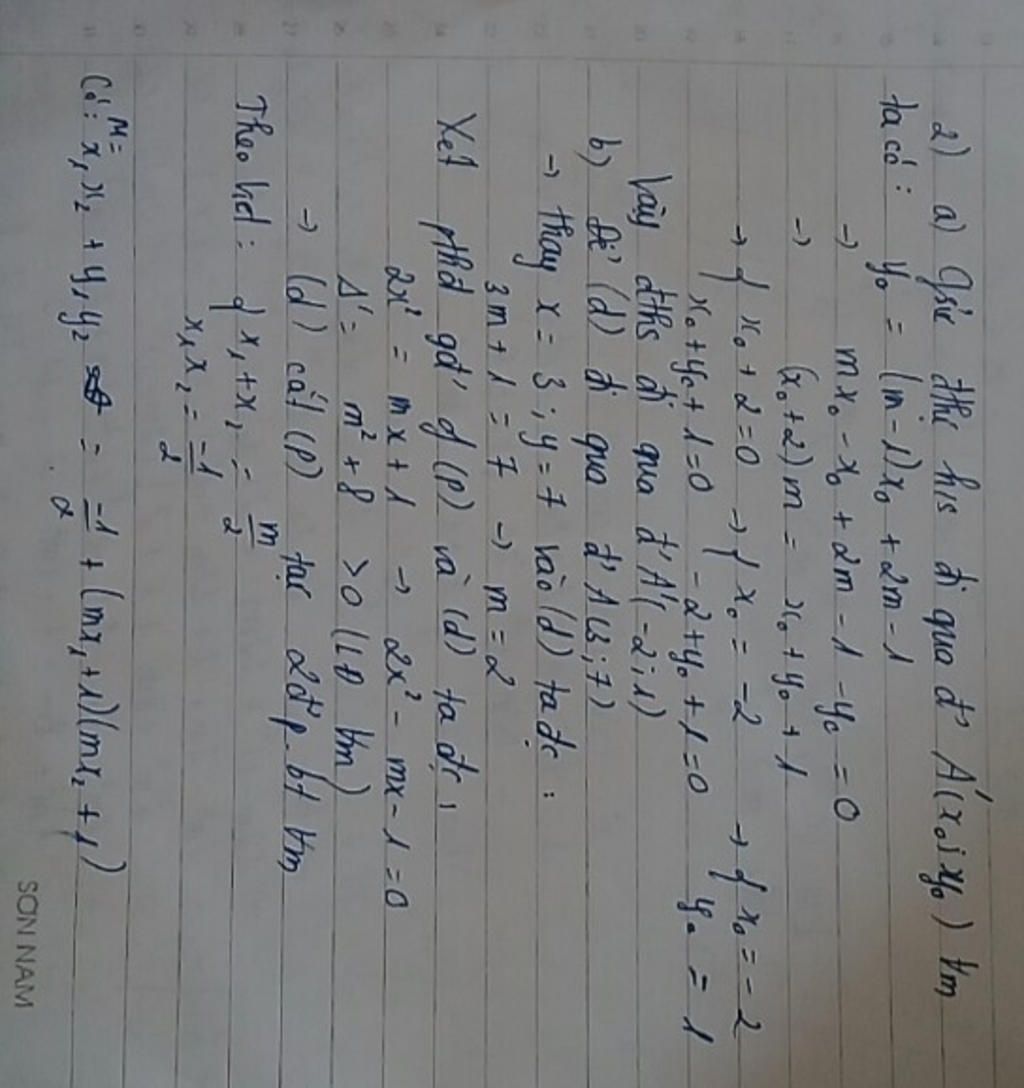 2) a) Giả sử đths đi qua đ' A'(x₀; y₀) ∀m
ta có: y₀ = (m-1)x₀ + 2m-1
→ mx₀ - x₀ + 2m - 1 - y₀ = 0
→ (x₀+2)m = x₀ + y₀ + 1
→ { x₀ + 2 = 0 → { x₀ = -2 → { x₀ = -2
x₀+y₀+1=0 -2+y₀+1=0 y₀ = 1
Vậy đths đi qua đ' A'(-2;1)
b) Để (d) đi qua đ' A(3;7)
→ thay x = 3; y = 7 vào (d) ta đc:
3m + 1 = 7 → m = 2
Xét pthđ gđ' (P) và (d) ta đc:
2x² = mx + 1 → 2x² - mx - 1 = 0
Δ' = m² + 8 > 0 (LĐ ∀m)
→ (d) cắt (P) tại 2đ' p.bt ∀m
Theo hệ: { x₁+x₂ = m/2
x₁x₂ = -1/2
Có: M = x₁x₂ + y₁y₂ = -1/2 + (mx₁+1)(mx₂+1)
SƠN NAM